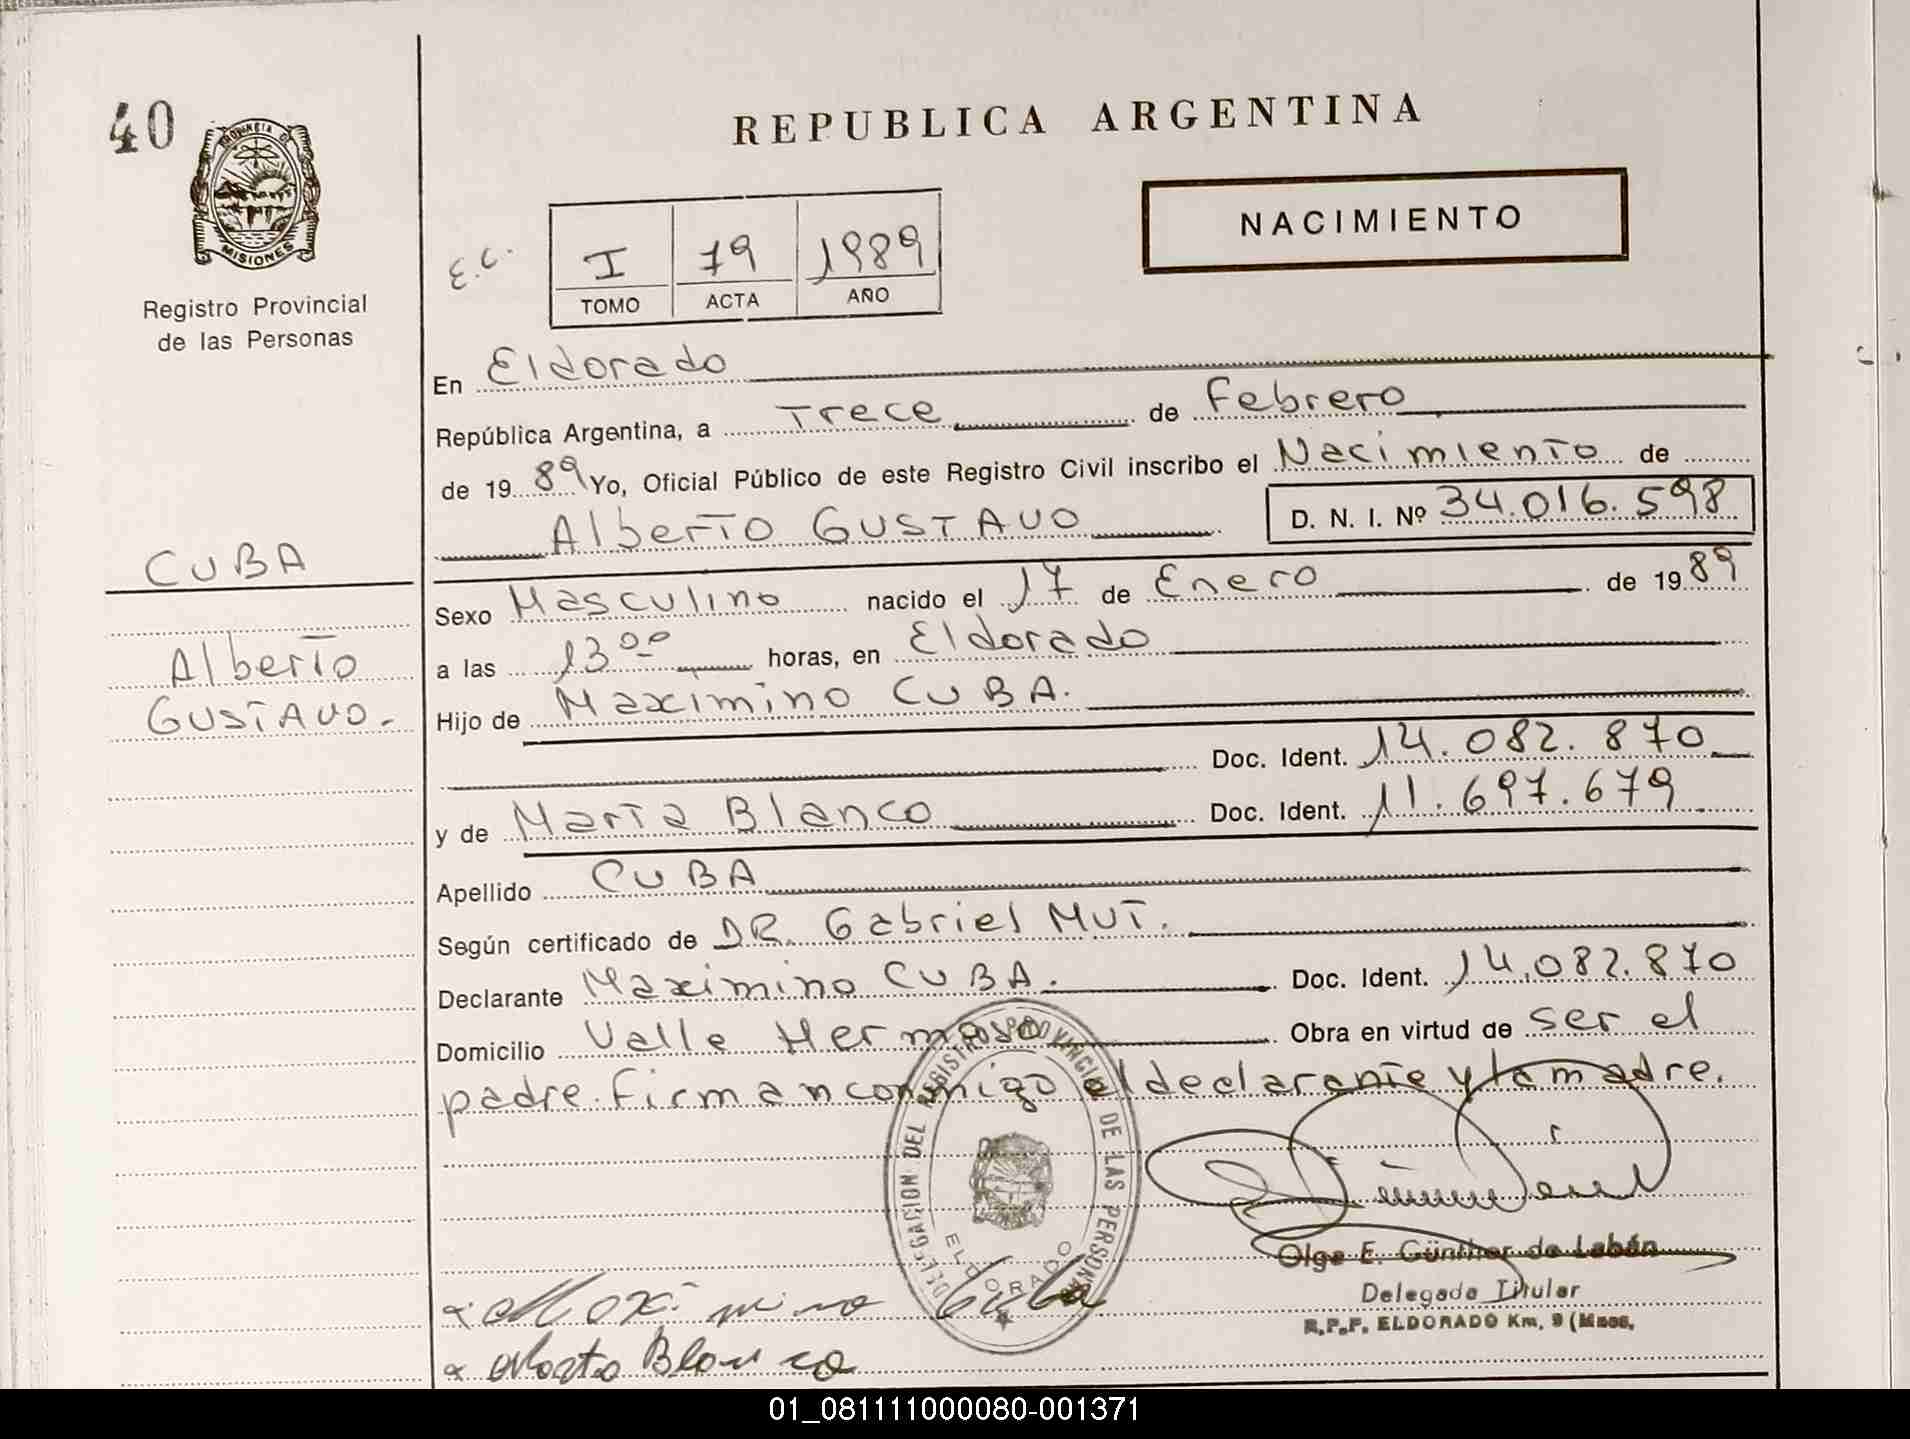 40
PROVINCIA DE
MISIONES
Registro Provincial
de las Personas
REPUBLICA ARGENTINA
NACIMIENTO
E.C.
I 79 1989
TOMO ACTA AÑO
En Eldorado
República Argentina, a Trece de Febrero
de 1989 Yo, Oficial Público de este Registro Civil inscribo el Nacimiento de
Alberto GUSTAVO D. N. I. Nº 34.016.598
CUBA
Alberto
GUSTAVO.-
Sexo Masculino nacido el 17 de Enero de 1989
a las 13 00 horas, en Eldorado
Hijo de Maximino CUBA.
Doc. Ident. 14.082.870
y de Marta Blanco Doc. Ident. 11.697.679
Apellido CUBA
Según certificado de DR. Gabriel MUT.
Declarante Maximino CUBA. Doc. Ident. 14.082.870
Domicilio Valle Hermoso Obra en virtud de ser el
padre. firman conmigo el declarante y la madre.
DELEGACION DEL REGISTRO PROVINCIAL DE LAS PERSONAS
ELDORADO
Olga E. Günther de Labán
Delegada Titular
R.P.P. ELDORADO Km. 9 (Mnes.
Maximino Cuba
Marta Blanco
01_081111000080-001371